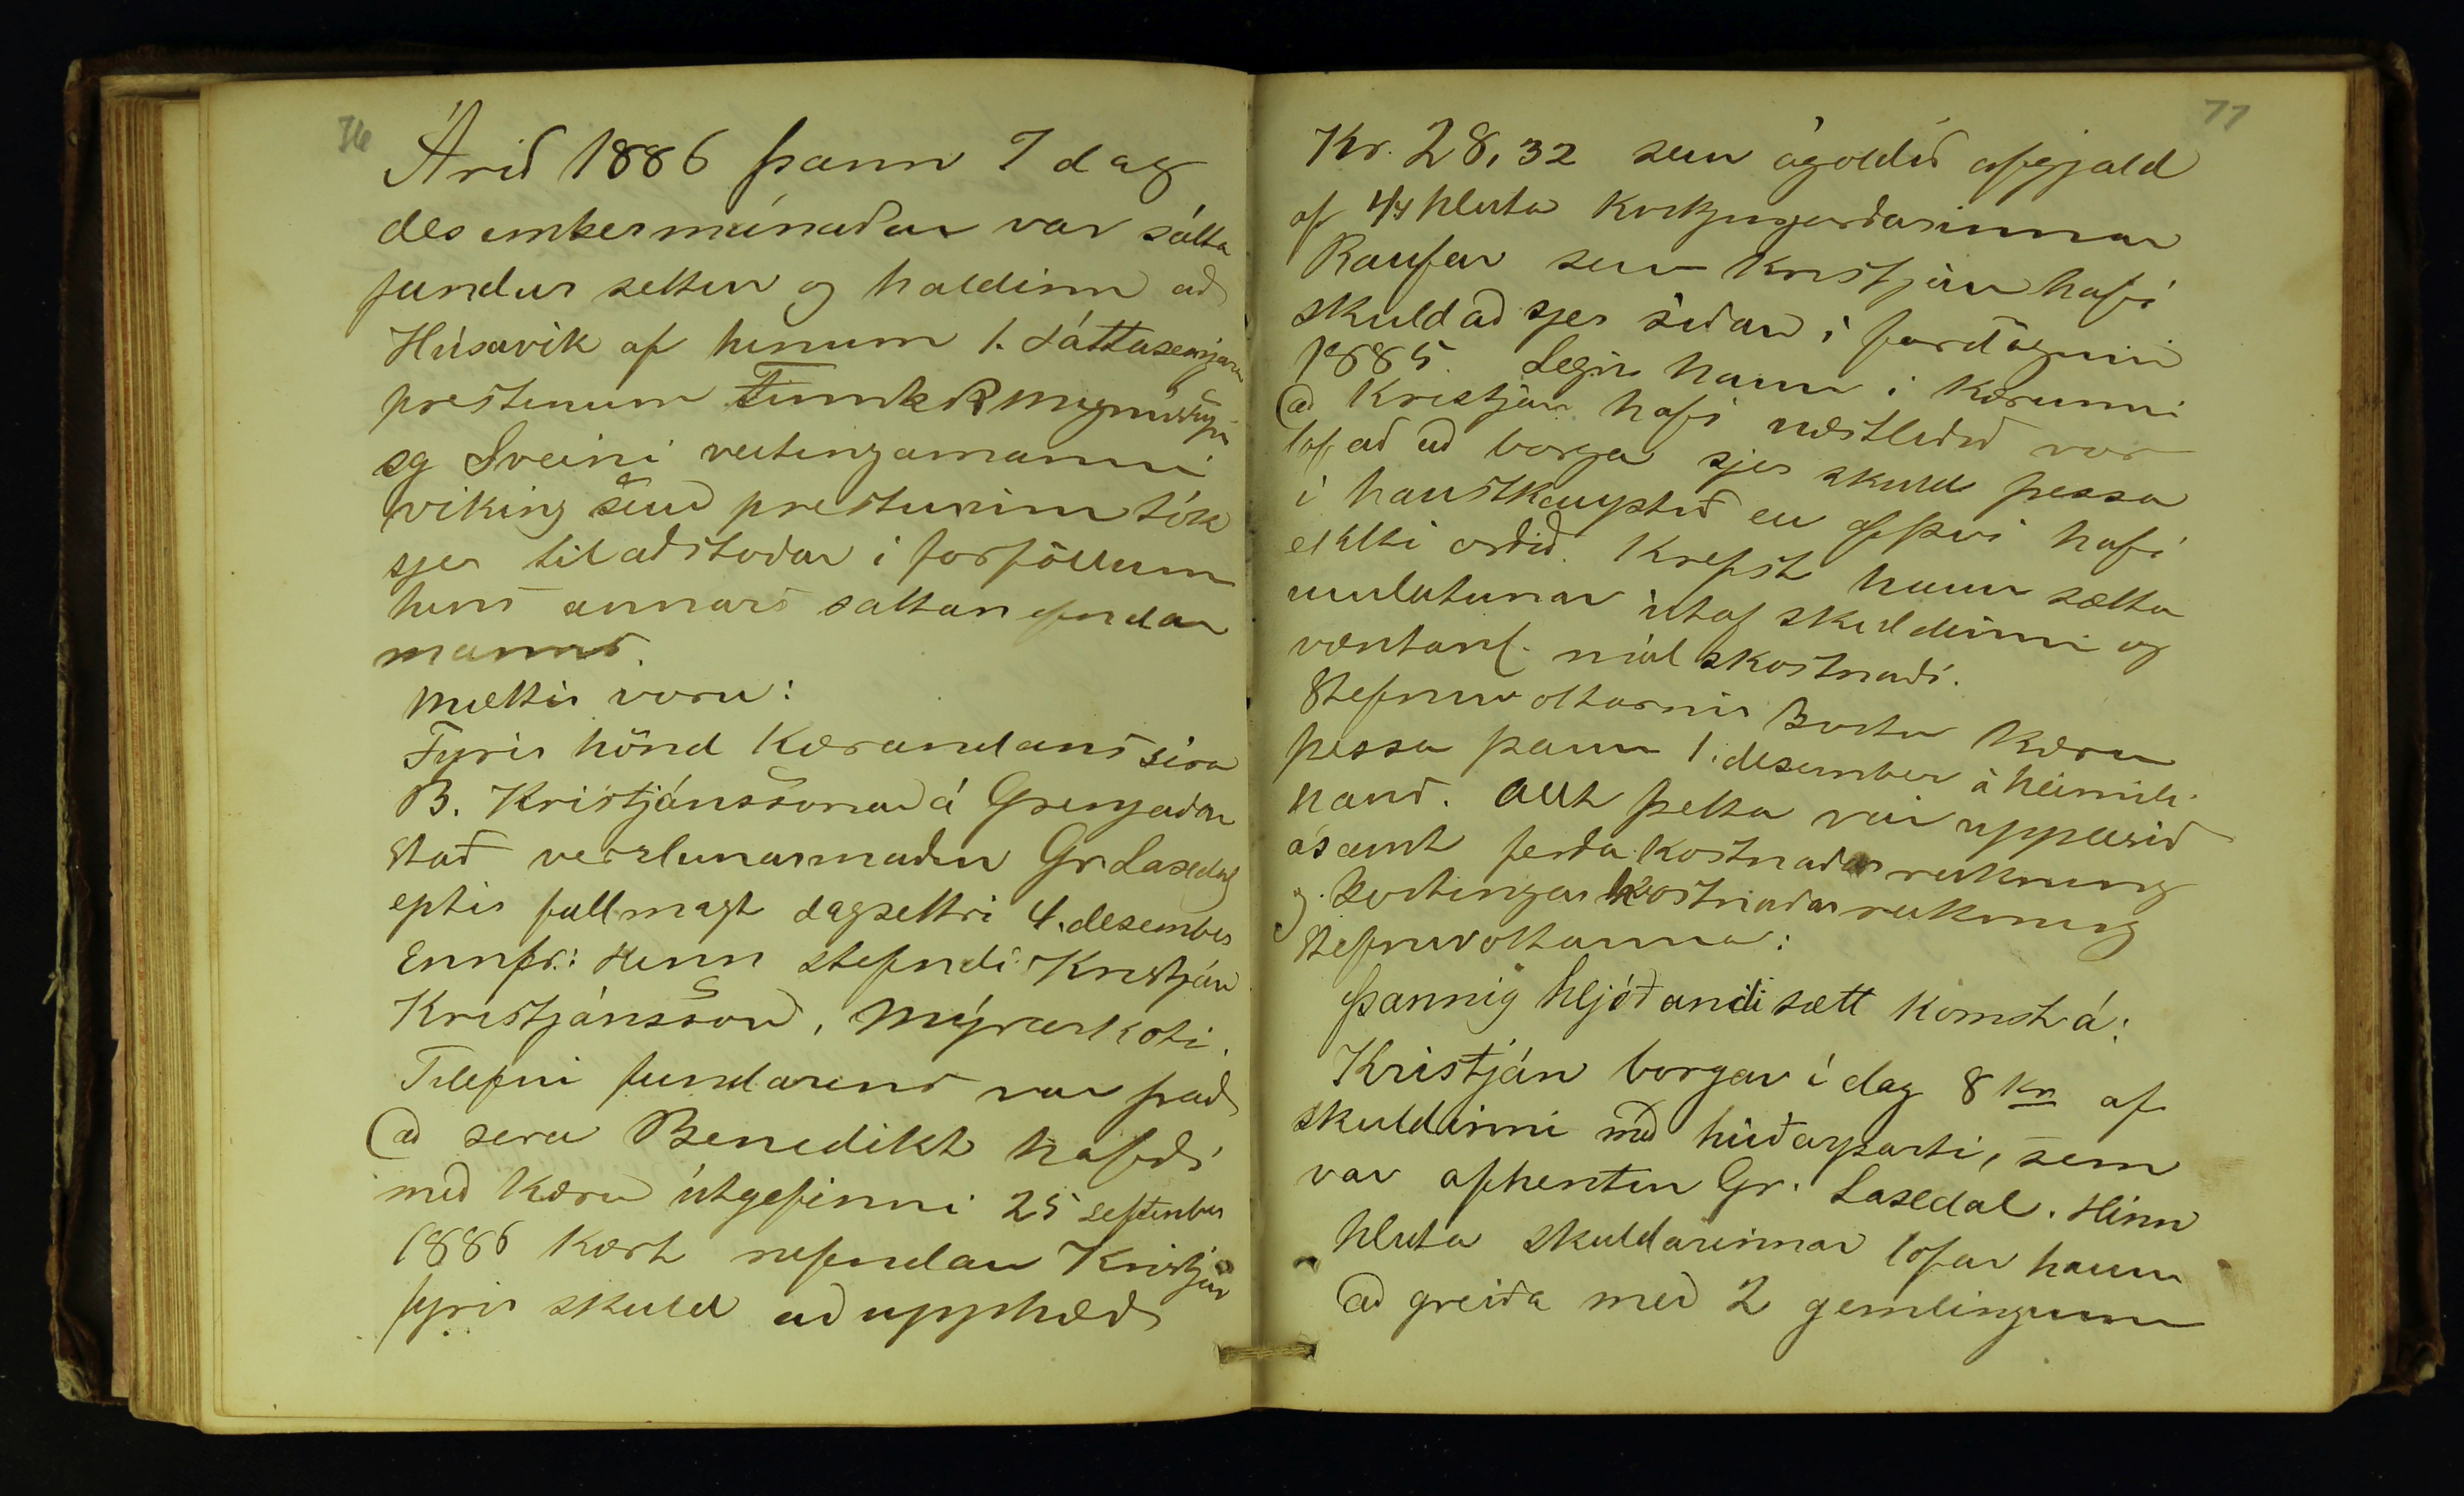 76
Árið 1886 þann 7 dag
desembermánaðar var sátta
fundur settur og haldinn að
Húsavík af hinum 1. sáttasemjara
prestinum Finnb. R Magnússyni
og Sveini veitingamanni
Víking sem presturinn tók
sjer til aðstoðar í forföllum
hins annars sáttanefndar
manns.
Mættir voru:
Fyrir hönd kærandans síra
B. Kristjánssonar á Grenjaðar
stað verzlunarmaður Gr. Laxdal
eptir fullmagt dagsettri 4. desember
Ennfr.: Hinn stefndi Kristján
Kristjánsson, Mýrarkoti.
Tilefni fundarins var það
að sera Benedikt hafði
með kæru útgefinni 25 september
1886 kært nefndan Kristján
fyrir skuld að upphæð
77
Kr. 28,32 sem ógoldið afgjald
af 1/4 hluta kirkjujarðarinnar
Raufar sem Kristján hafi
skuldað sjer síðan í fardögum
1885. Segir hann í kærunni
að Kristján hafi næstliðið vor
lofað að borga sjer skuld þessa
í haustkauptíð en af því hafi
ekki orðið. Krefst hann sætta
umleitunar útaf skuldinni og
væntanl. málskostnaði.
Stefnuvottarnir birtu kæru
þessa þann 1. desember á heimili
hans. Allt þetta var upplesið
ásamt ferðakostnaðarreikning
og birtingarkostnaðarreikning
stefnuvottanna:
Þannig hljóðandi sætt komst á:
Kristján borgar í dag 8 kr af
skuldinni með húðarparti, sem
var afhentur Gr. Laxdal. Hinn
hluta skuldarinnar lofar hann
að greiða með 2 gemlingum